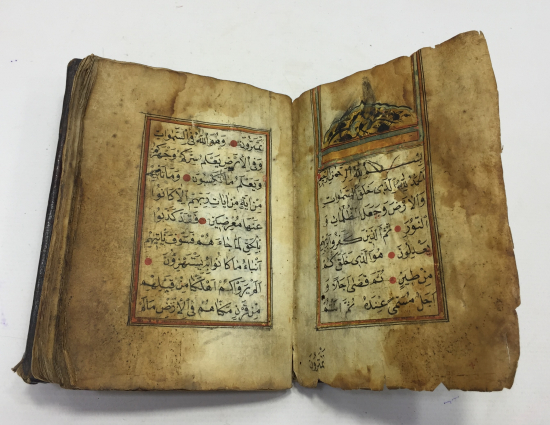 بسم الله الرحمن الرحيم
الحمد لله الذي خلق السموات
والارض وجعل الظلمات و
النور ثم الذين كفروا بربهم
يعدلون هو الذي خلقكم
من طين ثم قضى اجلا و
اجل مسمى عنده ثم انتم
تمترون
تمترون وهو الله في السموات
وفي الارض يعلم سركم وجهركم
ويعلم ما تكسبون وما تاتيهم
من اية من ايات ربهم الا كانوا
عنها معرضين فقد كذبوا
بالحق لما جاءهم فسوف ياتيهم
انباء ما كانوا به يستهزؤن
الم يروا كم اهلكنا من قبلهم
من قرن مكناهم في الارض ما لم